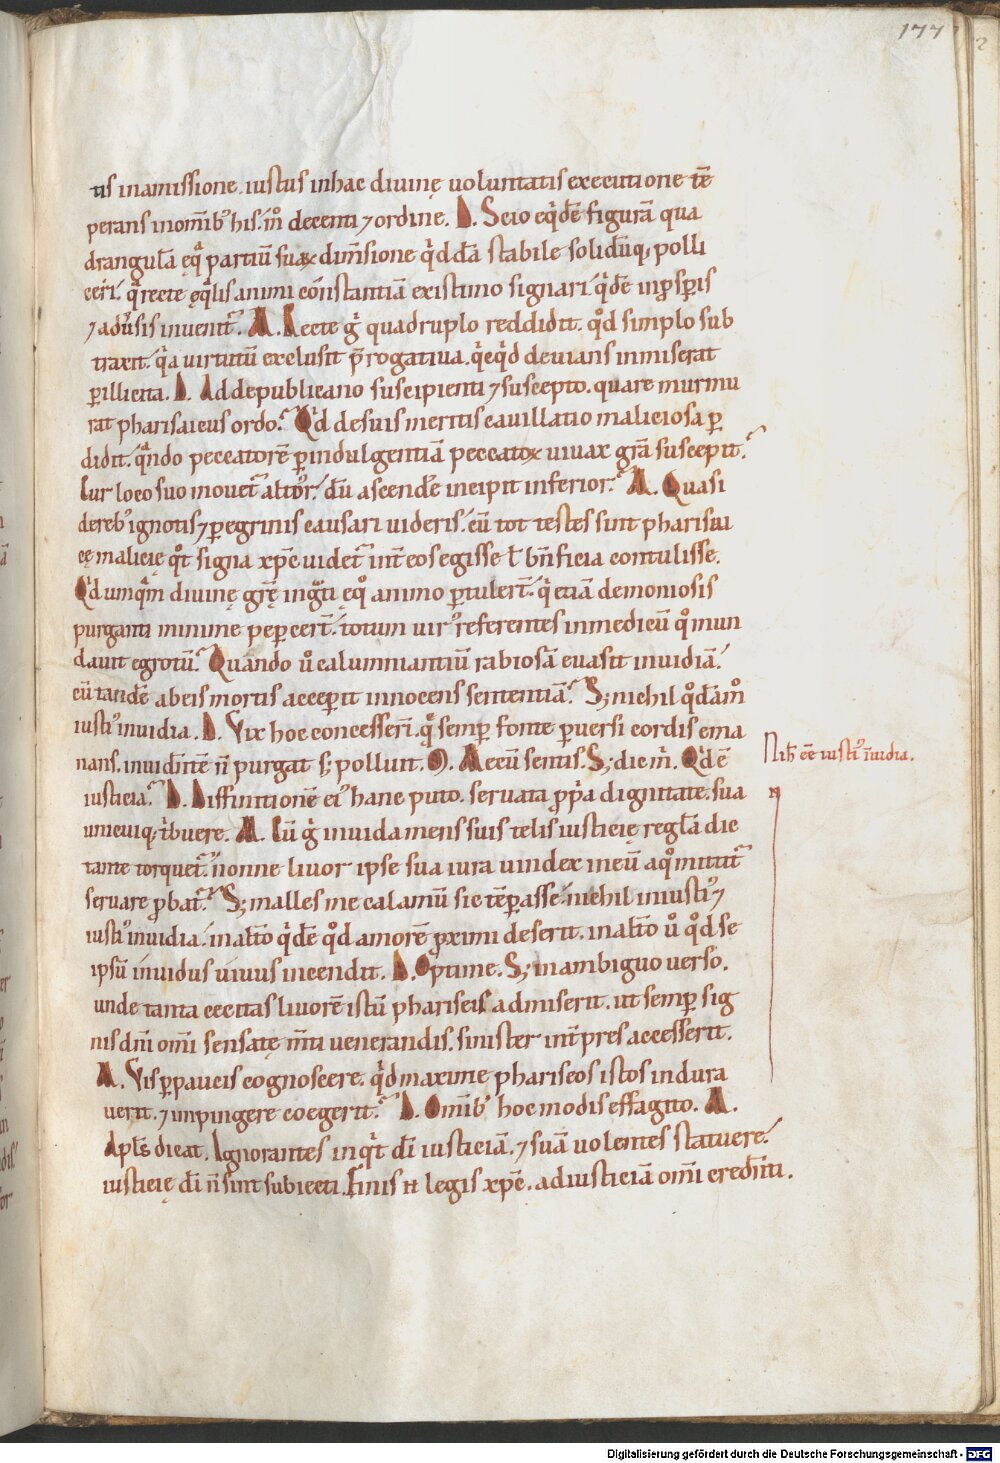 177
tis inamissione. iustus inhac diuinę uoluntatis executione tē
perans inom̄ib' his. m̊ decenti ⁊ ordine. D. Scio eq'dē figurā qua
drangul̄ā ęqᵃ partiū suaꝝ dim̄sione q'ddā stabile solidūq; polli
ceri. q' recte ęq̄lis animi cōnstantiā existimo signari. q'dē inp̱sp̱is
⁊ aduersis inuenit'. A. Recte g' quadruplo reddidit. q̊d simplo sub
traxit. q'a uirtutū exclusit p̄rogatiua. q'cq'd deuians inmiserat
p̱illicita. D. Ad depublicano suscipienti ⁊ suscepto. quare murmu
rat pharisaicus ordo. Q'd desuis meritis cauillatio maliciosa p̱
didit. qᵃndo peccatorē p̱indulgentiā peccatoꝝ uiuax gr̄a suscepit.
Cur loco suo mouet' altior. dū ascende incipit inferior. A. Quasi
dereb' ignotis ⁊ p̱egrinis causari uideris. cū tot testes sint pharisai
cę malicię q̊t signa xp̄c uidet' int̄ eos egisse ł bn̄ficia contulisse.
Q'd umqᵃm diuinę gr̄ę ingᵃti ęq̊ animo p̱tulert̄. q' etiā demoniosis
purganti minime pep̱cert̄. totum uir' referentes inmedicū q̊ mun
dauit egrotū. Quando ů calumniantiū rabiosā euasit inuidiā.
cū tandē abeis mortis accep̱it innocens sententiā. S; nichil q̊dām̊
iusti' inuidia. D. Vix hoc concesseri. q̊ semp̱ fonte p̱uersi cordis ema
nans. inuidintē n̄ purgat s; polluit. M. Aecū sentis. S; dic m'. Q'd ē
iusticia. D. Diffinitionē ei' hanc puto. seruata ꝓp'a dignitate. sua
unicuiq; t'buere. A. Cū g' inuida mens suis telis iusticię regl̄ā dic
tante torquet'. nonne liuor ipse sua iura uindex ineū aq̊ mittit'
seruare ꝓbat'. S; malles me calamū sic tēp̱asse. nichil iniusti' ⁊
iusti' inuidia. inalt̄o q'dē q̊d amorē ꝓximi deserit. inalt̄o ů q̊d se
ipsū inuidus uiuus incendit. D. Optime. S; inambiguo uerso.
unde tanta cecitas liuorē istū phariseis admiserit. ut semp̱ sig
nis dn̄i om̄i sensatę m̄ti uenerandis. sinister int̄pres accesserit.
A. Vis p̱paucis cognoscere. q'd maxime phariseos istos indura
uerit. ⁊ impingere coegerit. D. Om̄ib' hoc modis efflagito. A.
Apl̄s dicat. Ignorantes inq't dī iusticiā. ⁊ suā uolentes statuere.
iusticię dī n̄ sunt subiecti. Finis n̄ legis xp̄c. adiusticiā om̄i credn̄ti.
Nih̄ eē iusti' īuidia.
Digitalisierung gefördert durch die Deutsche Forschungsgemeinschaft - DFG